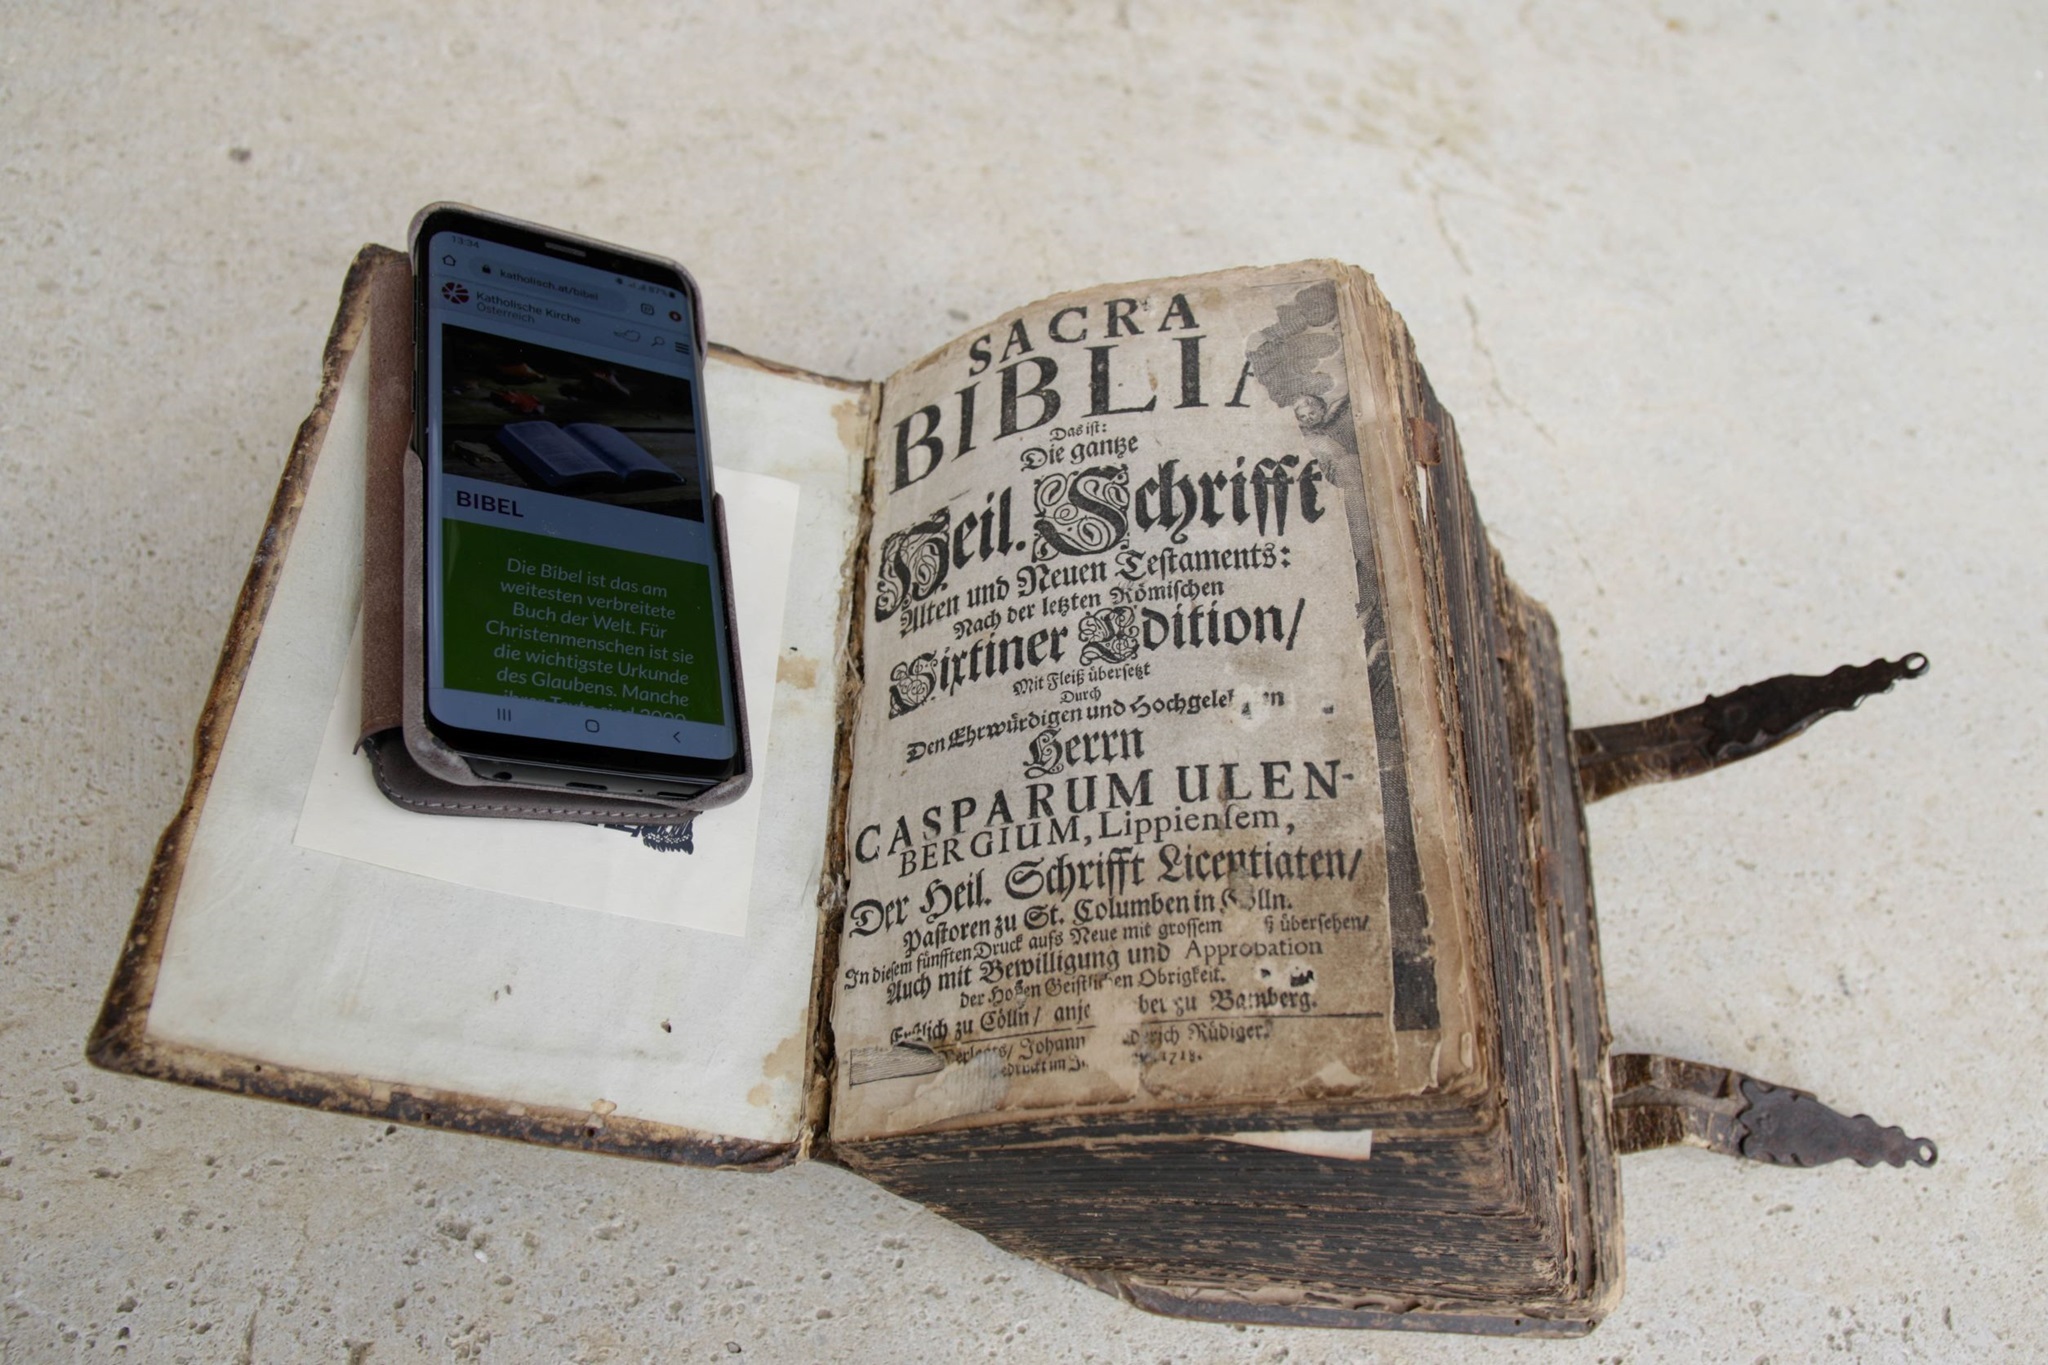 13:34
67%
katholisch.at/bibel
Katholische Kirche
Österreich
BIBEL
Die Bibel ist das am
weitesten verbreitete
Buch der Welt. Für
Christenmenschen ist sie
die wichtigste Urkunde
des Glaubens. Manche
ihrer Texte sind 3000
SACRA
BIBLIA
Das ist:
Die gantze
Heil. Schrifft
Alten und Neuen Testaments:
Nach der letzten Römischen
Sixtiner Edition/
Mit Fleiß übersetzt
Durch
Den Ehrwürdigen und Hochgele
Herrn
CASPARUM ULEN-
BERGIUM, Lippiensem,
Der Heil. Schrifft Licentiaten/
Pastoren zu St. Columben in Cölln.
In diesem fünfften Druck aufs Neue mit grossem übersehen/
Auch mit Bewilligung und Approbation
der Hohen Geistlichen Obrigkeit.
zu Cölln/ anje bey zu Bamberg.
Verlegts/ Johann Rüdiger.
1718.